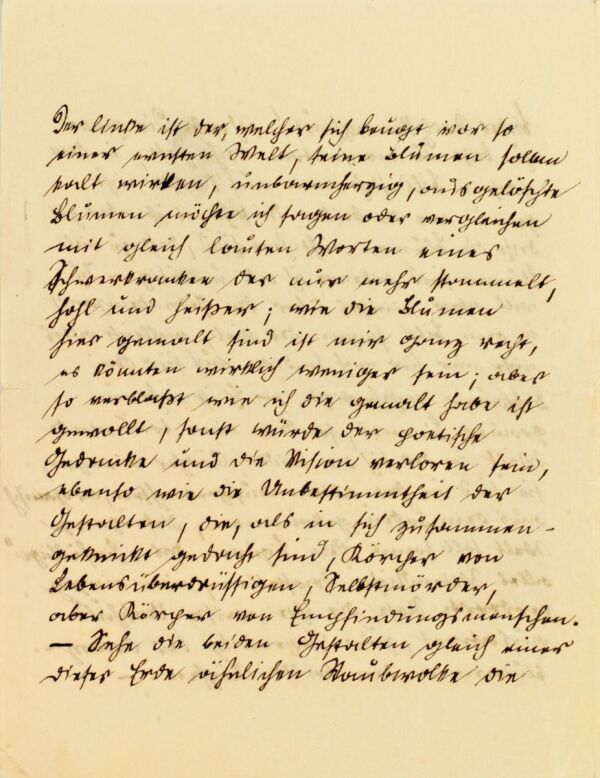 Der linke ist der, welcher sich beugt vor so
einer ernsten Welt, seine Blumen sollen
kalt wirken, unbarmherzig, ausgelöschte
Blumen möchte ich sagen oder vergleichen
mit gleich lauten Worten eines
Schwerkranken der nur mehr stammelt,
hohl und heißer; wie die Blumen
hier gemalt sind ist mir ganz recht,
es könnten wirklich weniger sein; aber
so verblaßt wie ich die gemalt habe ist
gewollt, sonst würde der poetische
Gedanke und die Vision verloren sein,
ebenso wie die Unbestimmtheit der
Gestalten, die, als in sich zusammen-
geknickt gedacht sind, Körper von
Lebensüberdrüssigen, Selbstmörder,
aber Körper von Empfindungsmenschen.
— Sehe die beiden Gestalten gleich einer
dieser Erde ähnlichen Staubwolke die